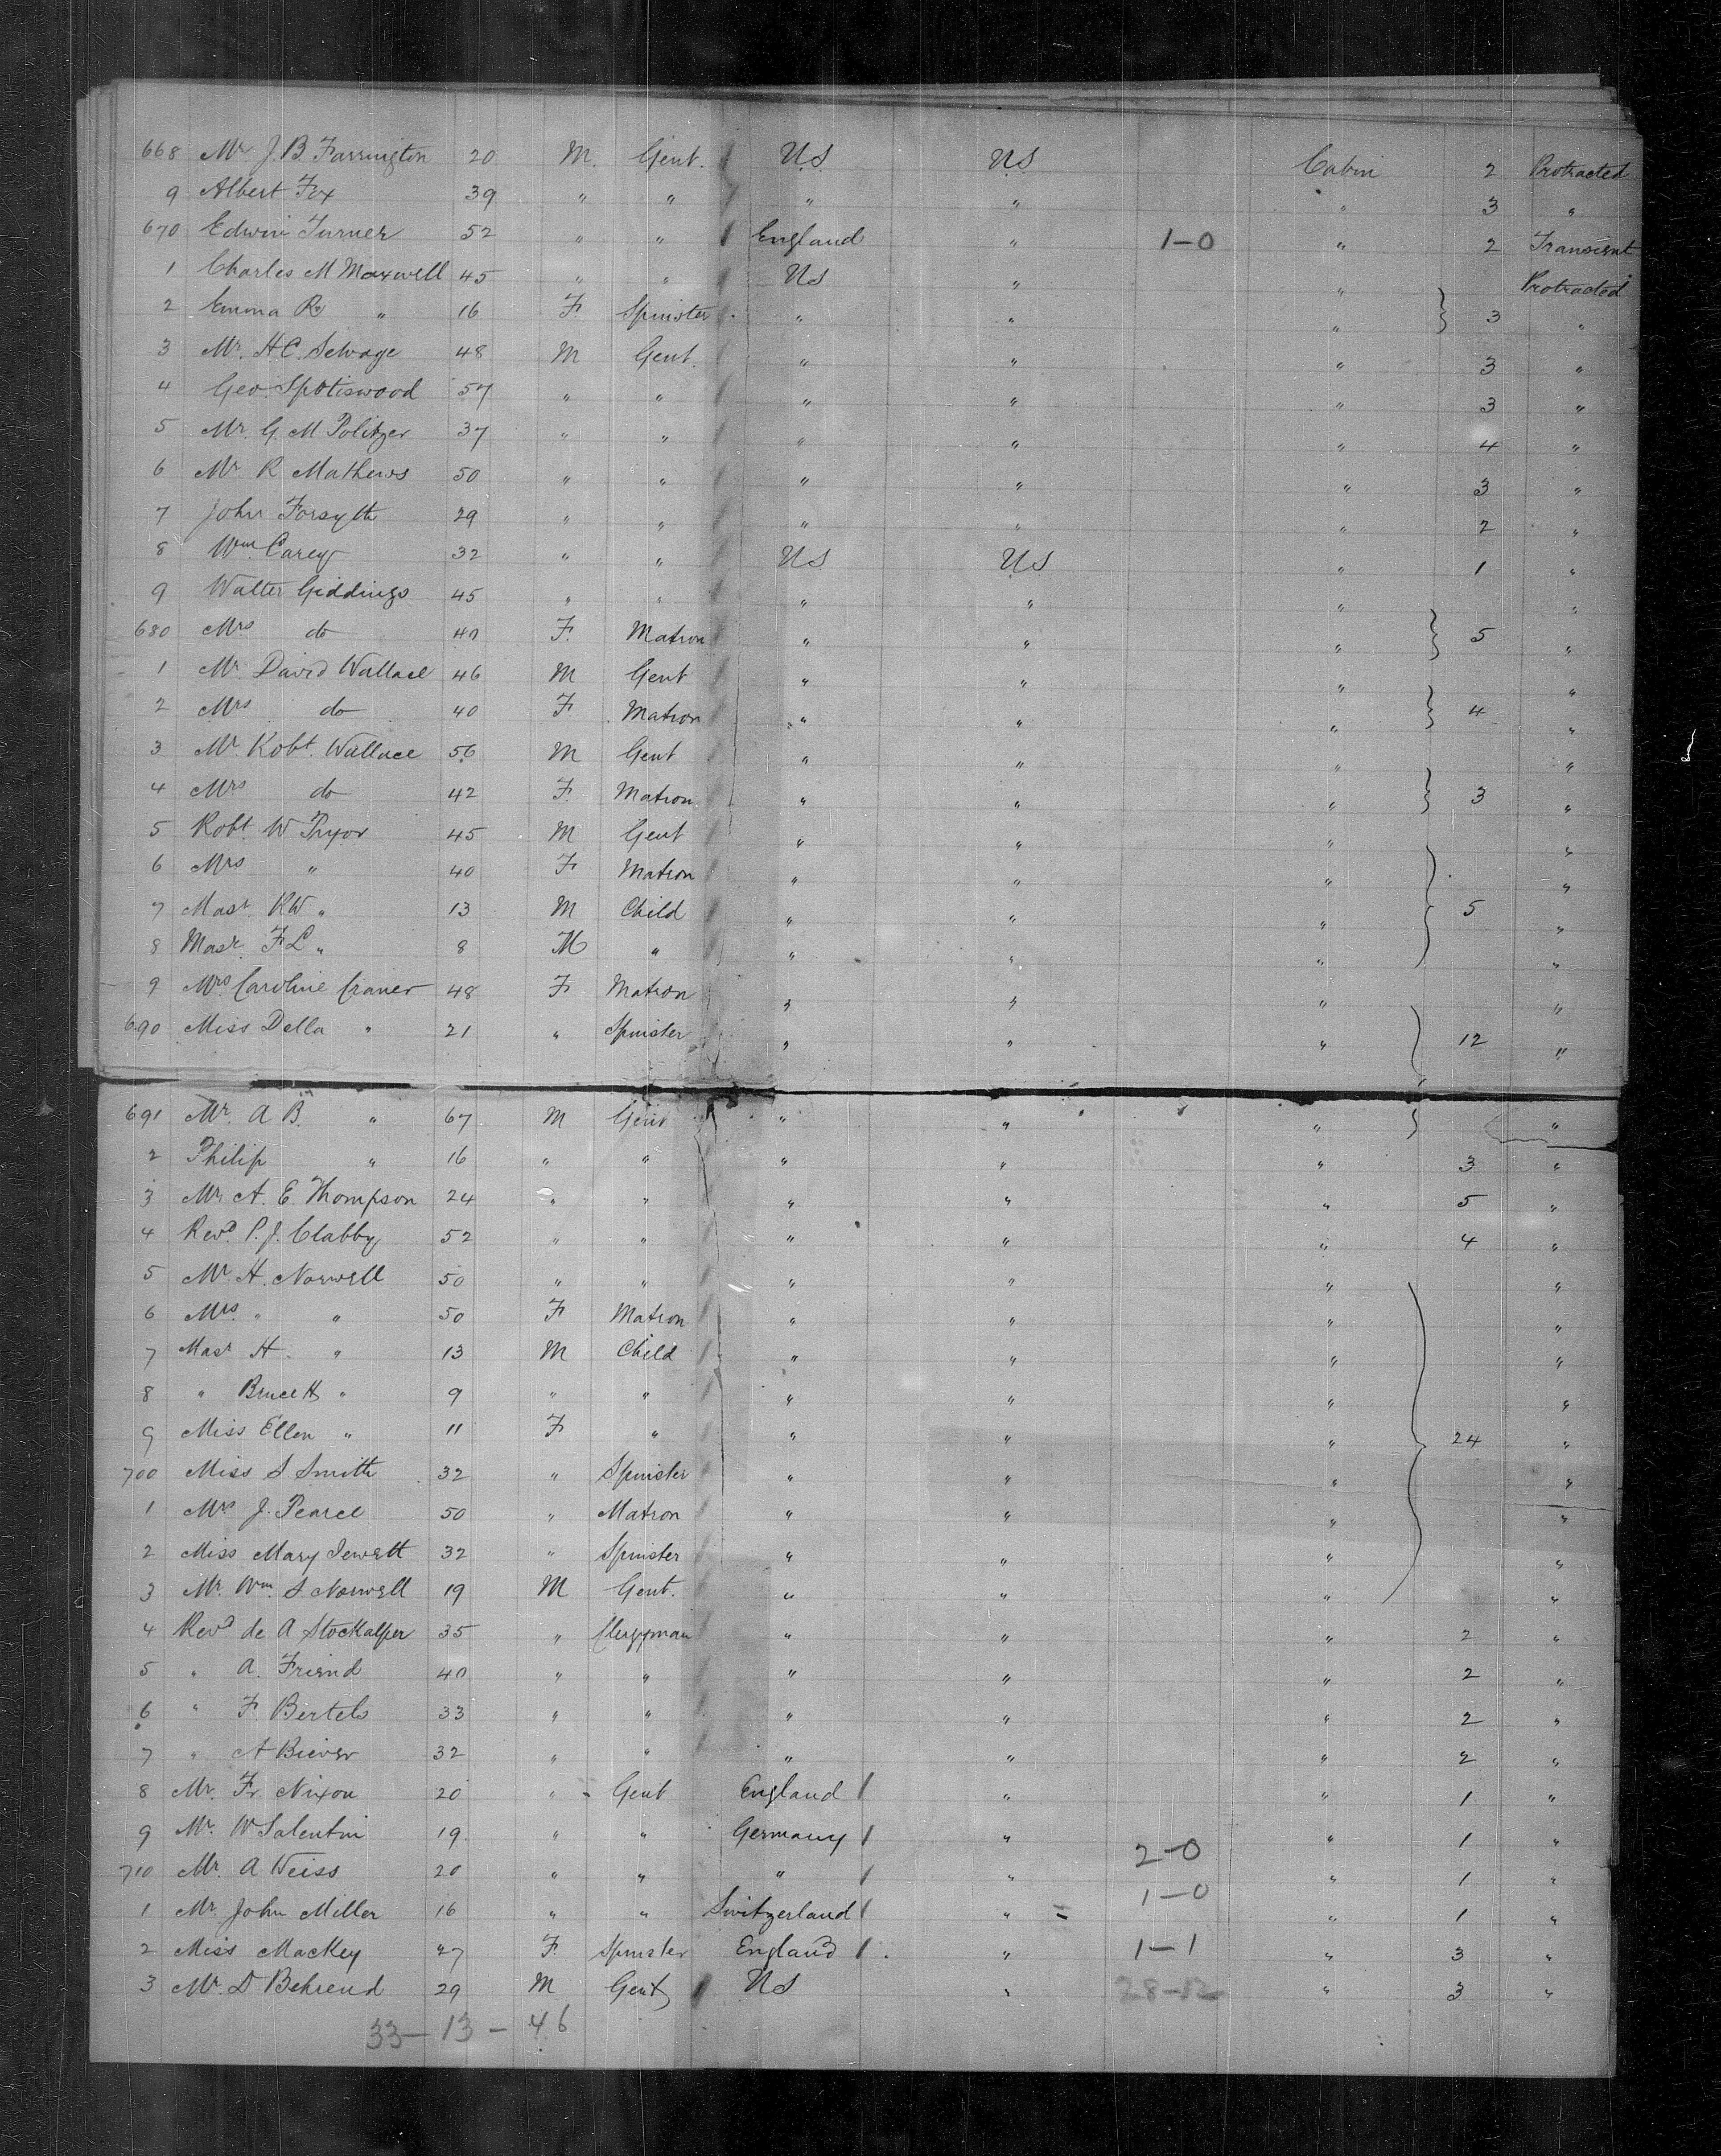 668 Mr. J. B. Farrington 20 M. Gent. US US Cabin 2 Protracted
9 Albert Fox 39 " " " " " 3 "
670 Edwin Turner 52 " " England " 1-0 " 2 Transient
1 Charles M Maxwell 45 " " US " " Protracted
2 Emma R. " 16 F. Spinster " " " } 3 "
3 Mr. H C. Selvage 48 M Gent. " " " 3 "
4 Geo. Spotiswood 57 " " " " " 3 "
5 Mr. G. M Politzer 37 " " " " " 4 "
6 Mr. R Mathews 50 " " " " " 3 "
7 John Forsyth 29 " " " " " 2 "
8 Wm. Carey 32 " " US US " 1 "
9 Walter Giddings 45 " " " " " "
680 Mrs do 40 F. Matron " " " } 5 "
1 Mr. David Wallace 46 M Gent " " " "
2 Mrs do 40 F Matron " " " } 4 "
3 Mr. Robt. Wallace 56 M Gent " " " "
4 Mrs do 42 F. Matron " " " } 3 "
5 Robt. W Pryor 45 M Gent " " " "
6 Mrs " 40 F Matron " " " "
7 Mast. RW " 13 M Child " " " } 5 "
8 Mast. F L " 8 M " " " " "
9 Mrs. Caroline Craner 48 F Matron " " " "
690 Miss Della " 21 " Spinster " " " 12 "
691 Mr. A B. " 67 M Gent " " " } "
2 Philip " 16 " " " " " 3 "
3 Mr. A. E. Thompson 24 " " " " " 5 "
4 Revd. P. J. Clabby 52 " " " " " 4 "
5 Mr. H. Norwell 50 " " " " " "
6 Mrs. " " 50 F Matron " " " "
7 Mast H. " 13 M Child " " " "
8 " Bruce H " 9 " " " " " "
9 Miss Ellen " 11 F " " " " } 24 "
700 Miss S Smith 32 " Spinster " " " "
1 Mrs J. Pearce 50 " Matron " " " "
2 Miss Mary Jewett 32 " Spinster " " " "
3 Mr. Wm. S. Norwell 19 M Gent. " " " "
4 Revd de A Stockalper 35 " Clergyman " " " 2 "
5 " A. Friend 40 " " " " " 2 "
6 " F. Bertels 33 " " " " " 2 "
7 " A Biever 32 " " " " " 2 "
8 Mr. Fr. Nixon 20 " Gent England " " 1 "
9 Mr. W Salentin 19 " " Germany " 2-0 " 1 "
710 Mr. A Weiss 20 " " " " " 1 "
1 Mr. John Miller 16 " " Switzerland " 1-0 " 1 "
2 Miss Mackey 27 F. Spinster England " 1-1 " 3 "
3 Mr. D Behrend 29 M Gent US " 28-12 " 3 "
33-13-46